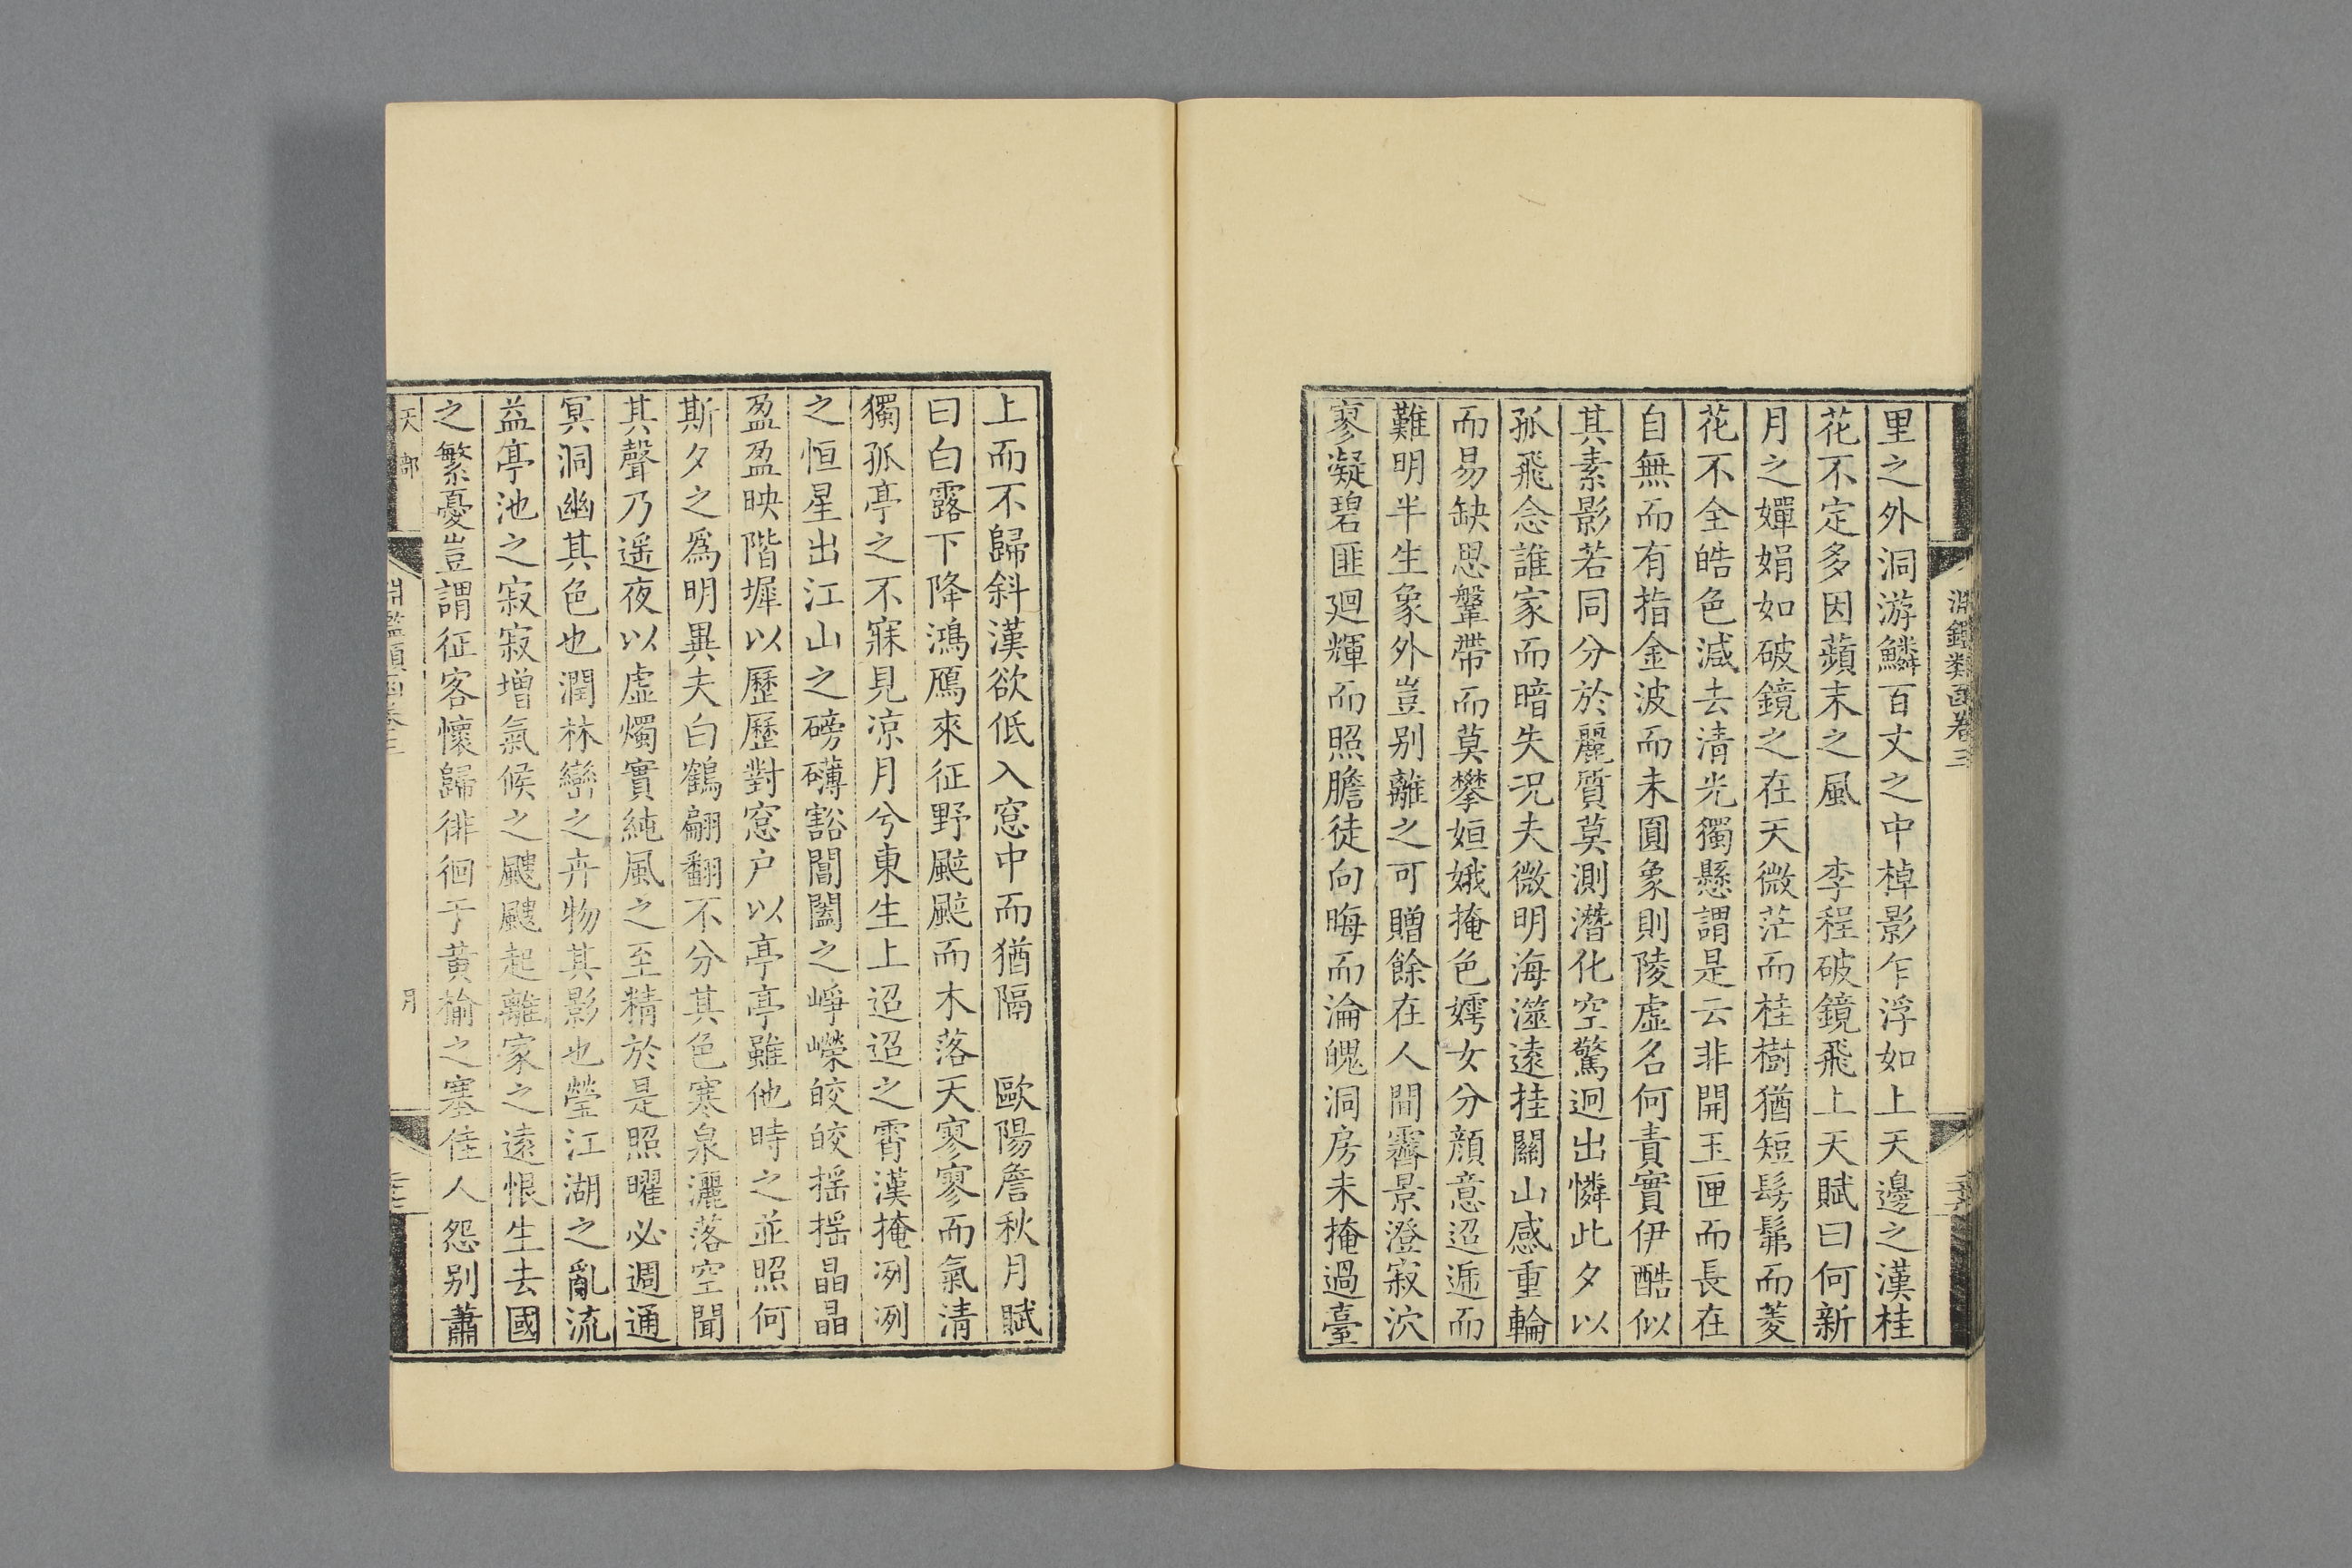 淵鑑類函卷三
里之外洞游鱗百丈之中棹影乍浮如上天邊之漢桂
花不定多因蘋末之風　李程破鏡飛上天賦曰何新
月之嬋娟如破鏡之在天微茫而桂樹猶短髣髴而菱
花不全皓色減去清光獨懸謂是云非開玉匣而長在
自無而有指金波而未圓象則陵虛名何責實伊酷似
其素影若同分於麗質莫測潛化空驚迥出憐此夕以
孤飛念誰家而暗失況夫微明海澨遠挂關山感重輪
而易缺思鞶帶而莫攀姮娥掩色嫮女分顔意迢遞而
難明半生象外豈别離之可贈餘在人間霽景澄寂泬
寥凝碧匪廻輝而照膽徒向晦而淪魄洞房未掩過臺
上而不歸斜漢欲低入窓中而猶隔　歐陽詹秋月賦
曰白露下降鴻鴈來征野颾颾而木落天寥寥而氣清
獨孤亭之不寐見凉月兮東生上迢迢之霄漢掩洌洌
之恒星出江山之磅礴豁閶闔之崢嶸皎皎揺揺晶晶
盈盈映階墀以歷歷對窓户以亭亭雖他時之並照何
斯夕之爲明異夫白鶴翩翻不分其色寒泉灑落空聞
其聲乃遥夜以虛燭實純風之至精於是照曜必週通
冥洞幽其色也潤林巒之卉物其影也瑩江湖之亂流
益亭池之寂寂增氣候之飂飂起離家之遠恨生去國
之繁憂豈謂征客懷歸徘徊于黃榆之塞佳人怨别蕭
天部
淵鑑類函卷三
月